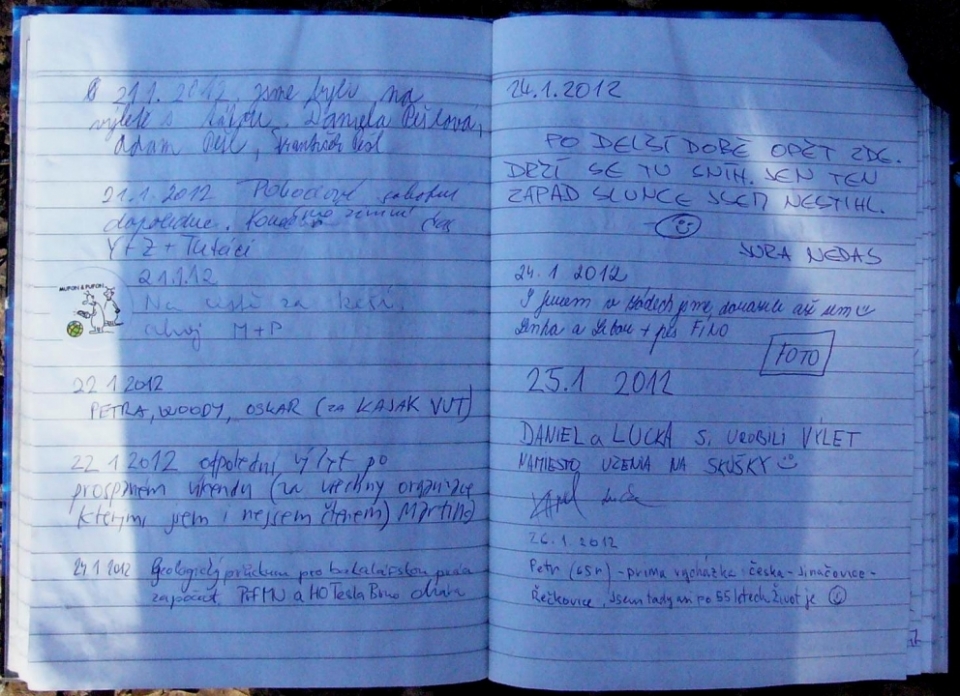 21.1. 2012 jsme byli na
výletě s Daniela Pešlová,
Adam Pešl, František Pešl
21.1.2012 Pohodové sobotní
dopoledne. čas
Y+Z + Tuťáci
MUFON & FUFON
21.1.12
Na cestě za keší,
ahoj M+P
22.1.2012
PETRA, WOODY, OSKAR (ZA KAJAK VUT)
22.1.2012 odpolední výlet po
prospaném víkendu (za všechny organizace
kterými jsem i nejsem členem) Martina
24.1.2012 Geologický průzkum pro bakalářskou práci
započat. PřFMU a HO Tesla Brno
24.1.2012
PO DELŠÍ DOBĚ OPĚT ZDE.
DRŽÍ SE TU SNÍH. JEN TEN
ZÁPAD SLUNCE JSEM NESTIHL.
JURA NEDAS
24.1 2012
až sem
Lenka a + pes FÍNO
FOTO
25.1 2012
DANIEL a LUCKA SI UROBILI VÝLET
NAMIESTO UČENIA NA SKÚŠKY
26.1.2012
Petr (65r) - prima vycházka - Česka - Jinačovice -
Řečkovice, jsem tady asi po 55 letech život je